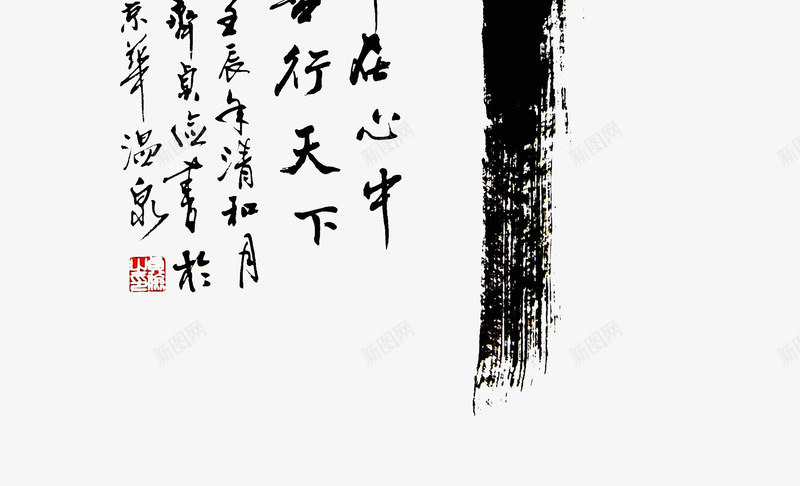 在心中
行天下
壬辰年清和月
齊貞儉書於
京華溫泉
新图网
新图网
新图网
新图网
新图网
新图网